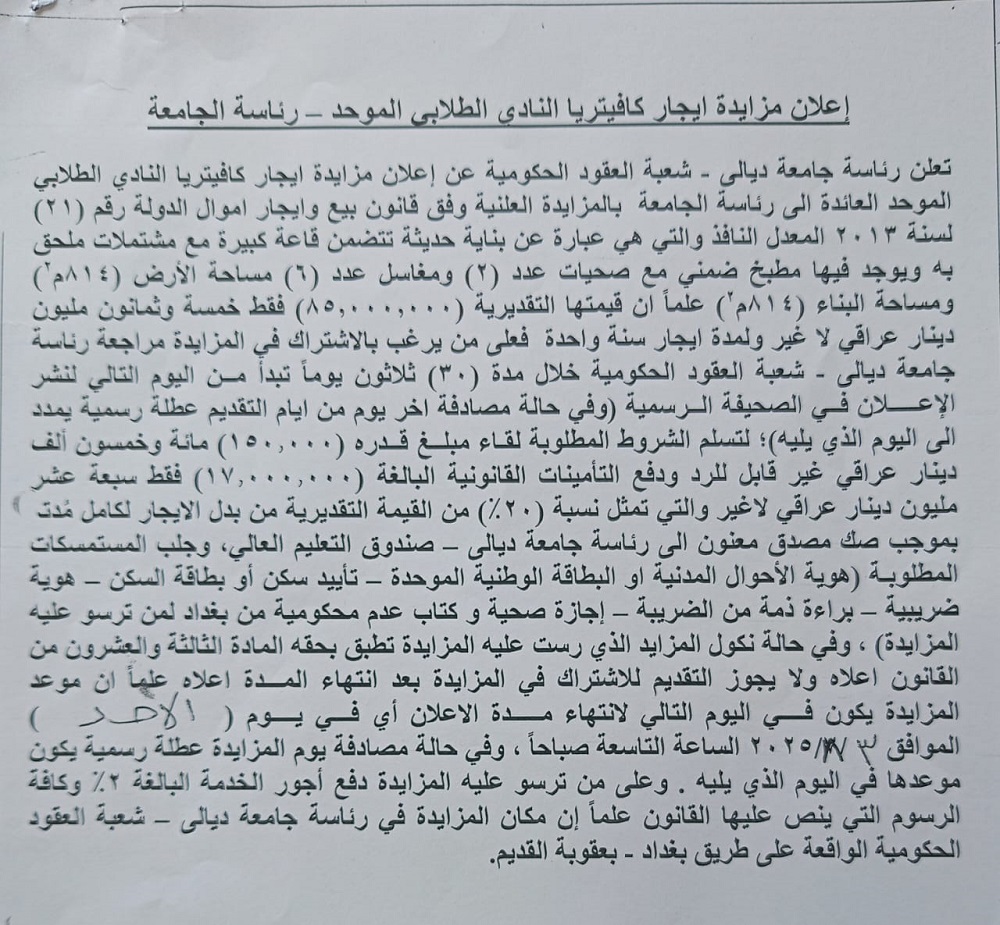 إعلان مزايدة ايجار كافيتريا النادي الطلابي الموحد – رئاسة الجامعة
تعلن رئاسة جامعة ديالى - شعبة العقود الحكومية عن إعلان مزايدة ايجار كافيتريا النادي الطلابي
الموحد العائدة الى رئاسة الجامعة بالمزايدة العلنية وفق قانون بيع وايجار اموال الدولة رقم (٢١)
لسنة ٢٠١٣ المعدل النافذ والتي هي عبارة عن بناية حديثة تتضمن قاعة كبيرة مع مشتملات ملحق
به ويوجد فيها مطبخ ضمني مع صحيات عدد (٢) ومغاسل عدد (٦) مساحة الأرض (٨١٤م٢)
ومساحة البناء (٨١٤م٢) علماً ان قيمتها التقديرية (٨٥,٠٠٠,٠٠٠) فقط خمسة وثمانون مليون
دينار عراقي لا غير ولمدة ايجار سنة واحدة فعلى من يرغب بالاشتراك في المزايدة مراجعة رئاسة
جامعة ديالى - شعبة العقود الحكومية خلال مدة (٣٠) ثلاثون يوماً تبدأ مـن اليوم التالي لنشر
الإعــلان في الصحيفة الـرسمية (وفي حالة مصادفة اخر يوم من ايام التقديم عطلة رسمية يمدد
الى اليوم الذي يليه)؛ لتسلم الشروط المطلوبة لقاء مبلـغ قـدره (١٥٠,٠٠٠) مائة وخمسون ألف
دينار عراقي غير قابل للرد ودفع التأمينات القانونية البالغة (١٧,٠٠٠,٠٠٠) فقط سبعة عشر
مليون دينار عراقي لاغير والتي تمثل نسبة (٢٠٪) من القيمة التقديرية من بدل الايجار لكامل مُدت
بموجب صك مصدق معنون الى رئاسة جامعة ديالى – صندوق التعليم العالي، وجلب المستمسكات
المطلوبـة (هوية الأحوال المدنية او البطاقة الوطنية الموحدة – تأييد سكن أو بطاقة السكن – هوية
ضريبية – براءة ذمة من الضريبة – إجازة صحية و كتاب عدم محكومية من بغداد لمن ترسو عليه
المزايدة) ، وفي حالة نكول المزايد الذي رست عليه المزايدة تطبق بحقه المادة الثالثة والعشرون من
القانون اعلاه ولا يجوز التقديم للاشتراك في المزايدة بعد انتهاء المـدة اعلاه علماً ان موعد
المزايدة يكون فـي اليوم التالي لانتهاء مـدة الاعلان أي فـي يـوم ( الاحد )
الموافق ٢٠٢٥/ الساعة التاسعة صباحاً ، وفي حالة مصادفة يوم المزايدة عطلة رسمية يكون
موعدها في اليوم الذي يليه . وعلى من ترسو عليه المزايدة دفع أجور الخدمة البالغة ٢٪ وكافة
الرسوم التي ينص عليها القانون علماً إن مكان المزايدة في رئاسة جامعة ديالى – شعبة العقود
الحكومية الواقعة على طريق بغداد - بعقوبة القديم.